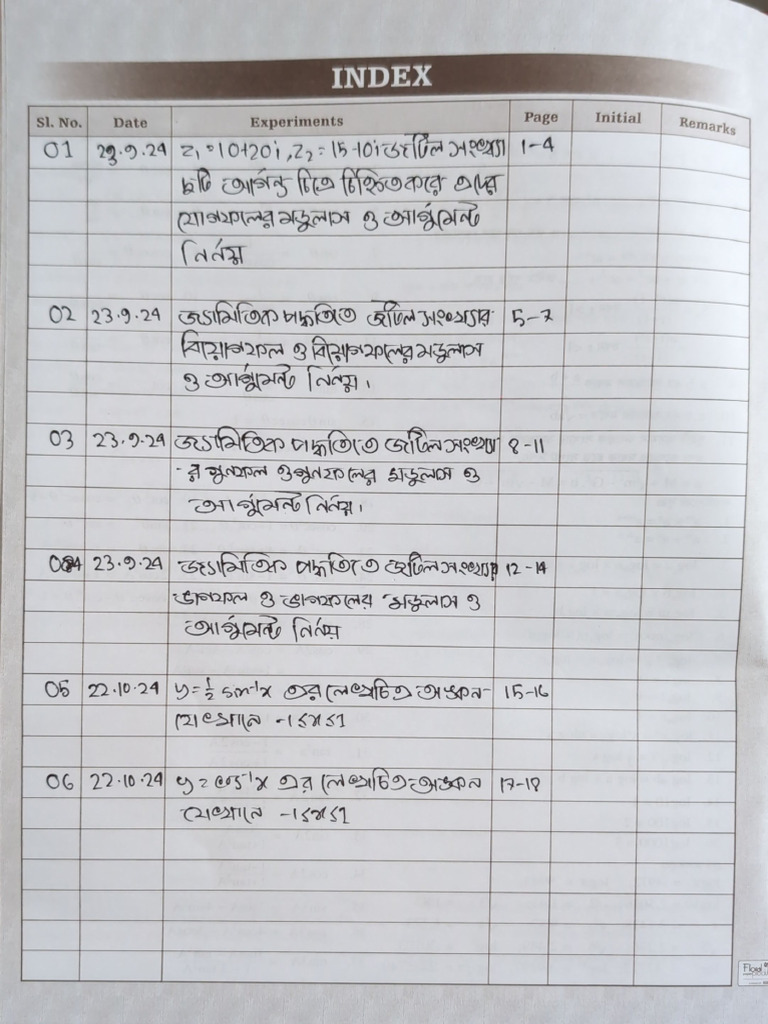 INDEX
Sl. No. Date Experiments Page Initial Remarks
01 23.9.24 z₁=10+20i, z₂=15-10i জটিল সংখ্যা 1-4
দুটি আর্গন্ড চিত্রে চিহ্নিত করে এদের
যোগফলের মডুলাস ও আর্গুমেন্ট
নির্ণয়
02 23.9.24 জ্যামিতিক পদ্ধতিতে জটিল সংখ্যার 5-7
বিয়োগফল ও বিয়োগফলের মডুলাস
ও আর্গুমেন্ট নির্ণয়।
03 23.9.24 জ্যামিতিক পদ্ধতিতে জটিল সংখ্যা 8-11
-র গুনফল ও গুনফলের মডুলাস ও
আর্গুমেন্ট নির্ণয়।
04 23.9.24 জ্যামিতিক পদ্ধতিতে জটিল সংখ্যার 12-14
ভাগফল ও ভাগফলের মডুলাস ও
আর্গুমেন্ট নির্ণয়
05 22.10.24 y=½ sin⁻¹x এর লেখচিত্র অঙ্কন 15-16
যেখানে -1≤x≤1
06 22.10.24 y=cos⁻¹x এর লেখচিত্র অঙ্কন 17-18
যেখানে -1≤x≤1